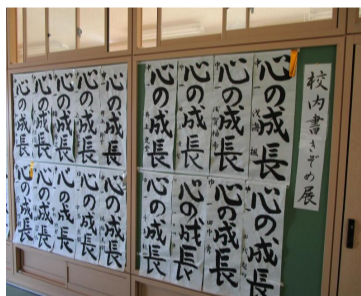 校内書きぞめ展
心の成長
心の成長
心の成長
心の成長
心の成長
心の成長
心の成長
心の成長
心の成長
心の成長
心の成長
心の成長
心の成長
心の成長
心の成長
心の成長
心の成長
心の成長